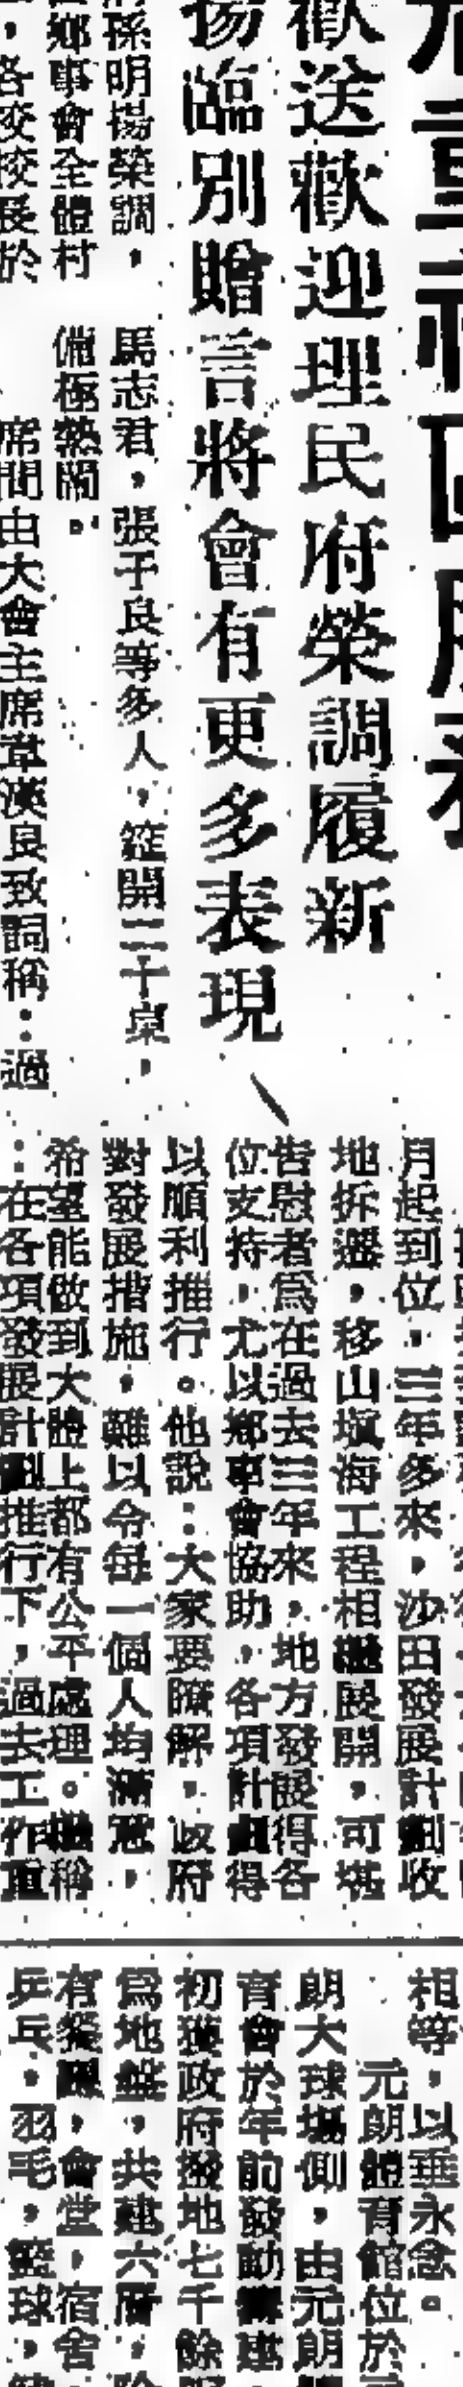 歡送歡迎理民府榮調履新
揚臨別贈言將會有更多表現
孫明揚榮調，
鄉事會全體村
，各校校長於
馬志君，張子良等多人，筵開三十桌，
備極熱鬧。
席間由大會主席韋漢良致詞稱：過
月起到位，三年多來，沙田發展計劃收
地拆遷，移山塡海工程相繼展開，可堪
告慰者爲在過去三年來，地方發展得各
位支持，尤以鄉事會協助，各項計劃得
以順利推行。他說：大家要瞭解，政府
對發展措施，難以令每一個人均滿意，
希望能做到大體上都有公平處理。他稱
：在各項發展計劃推行下，過去工作
相等，以垂永念。
元朗體育館位於
朗大球場側，由元朗
育會於年前發動籌建
初獲政府撥地七千餘
爲地盤，共建六層，
有 ，會堂，宿舍
乒乓，羽毛，籃球，